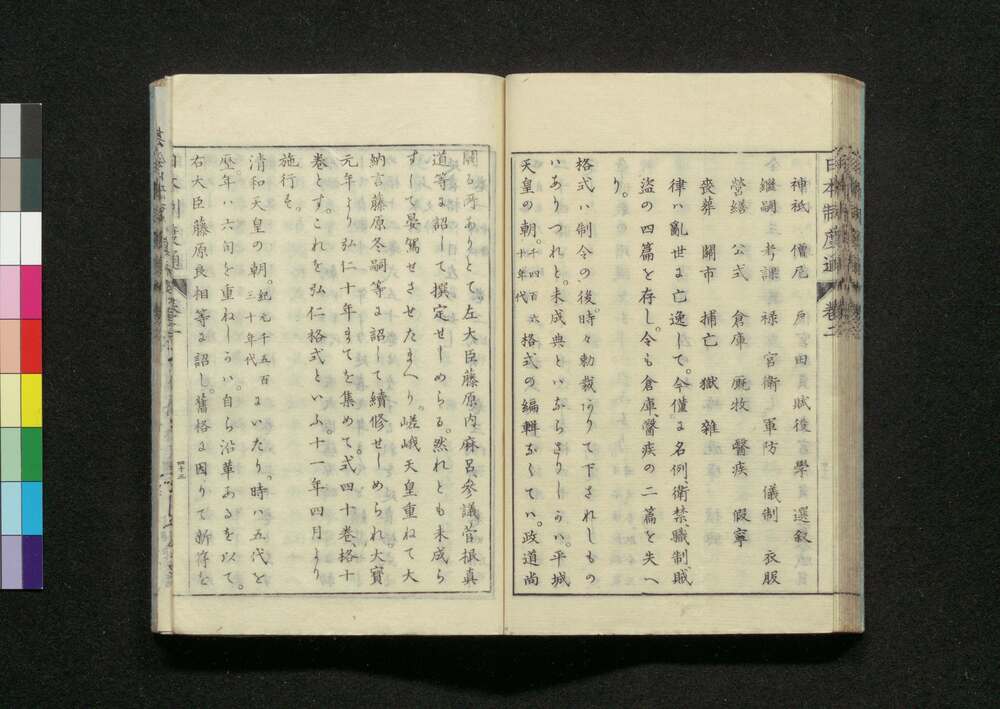 日本制度通 卷二
神祇 僧尼 戶 宮 田 賦役 學 選叙
繼嗣 考課 祿 宮衛 軍防 儀制 衣服
營繕 公式 倉庫 厩牧 醫疾 假寧
喪葬 關市 捕亡 獄 雜
律ハ亂世に亡逸して。今僅に名例、衛禁、職制、賊
盜の四篇を存し。令も倉庫、醫疾の二篇を失へ
り。
格式ハ制令の後。時々勅裁ありて下されしもの
ハありつれと。未成典といふらさりしうハ。平城
天皇の朝。千四百六十年代格式の編輯なくてハ。政道尚
闕る所ありとて左大臣藤原内麻呂、參議菅根眞
道等に詔して撰定せしめらる。然れとも未成ら
すして晏駕せさせたまへり。嵯峨天皇重ねて大
納言藤原冬嗣等に詔して續修せしめられ。大寶
元年より弘仁十年まてを集めて。式四十卷、格十
卷とす。これを弘仁格式といふ。十一年四月より
施行を。
清和天皇の朝。紀元千五百三十年代にいたり。時ハ五代と
歴。年ハ六旬を重ねしうハ。自ら沿革あるを以て。
右大臣藤原良相等に詔し。舊格に因りて新符を
四十三